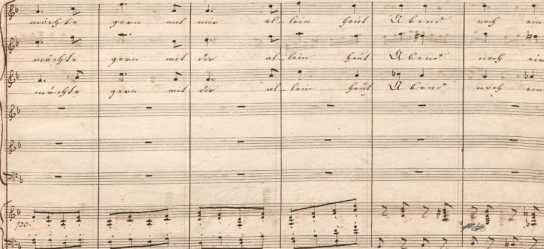 möchte gern mit mir al_lein heut Abend noch ein
möchte gern mit dir al_lein heut Abend noch ein
möchte gern mit dir al_lein heut Abend noch ein